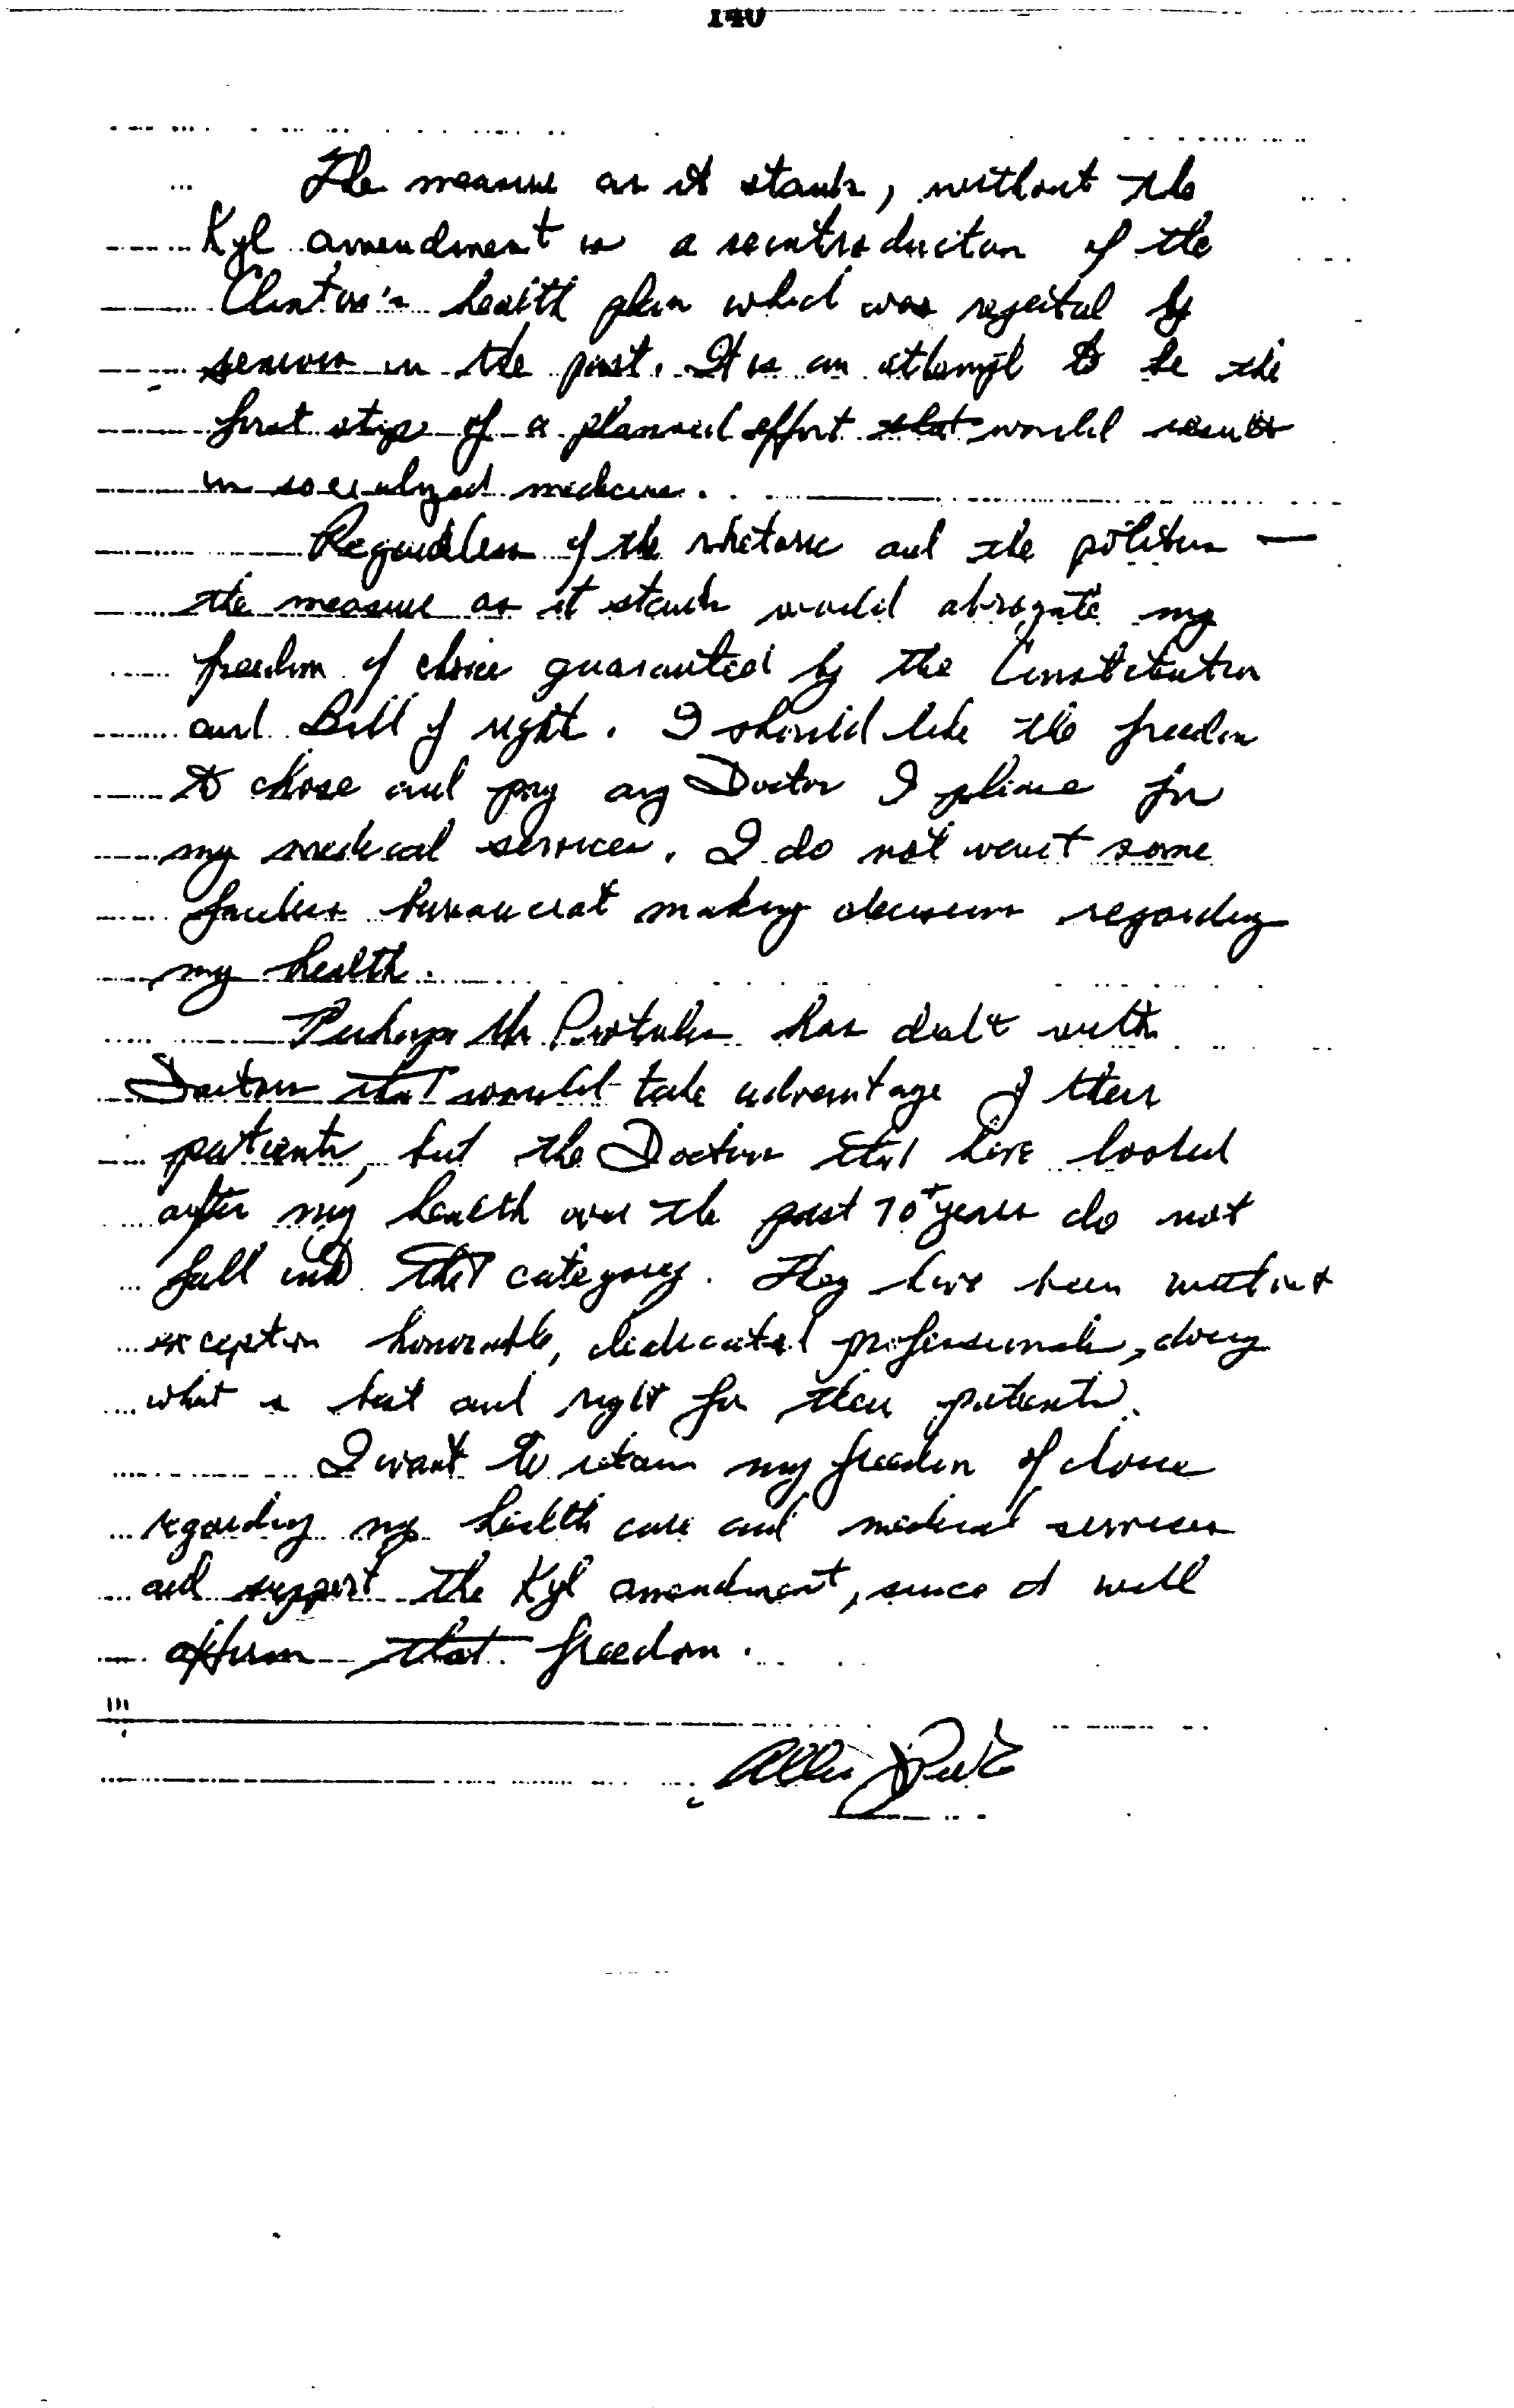 140
The measure as it stands, without the
Kyl amendment is a reintroduction of the
Clinton's health plan which was rejected by
seniors in the past. It is an attempt to be the
first step of a planned effort that would result
in socialized medicine.
Regardless of the rhetoric and the politics —
the measure as it stands would abrogate my
freedom of choice guaranteed by the Constitution
and Bill of right. I should like the freedom
to chose and pay any Doctor I please for
my medical services. I do not want some
faceless bureaucrat making decisions regarding
my health.
Perhaps Mr has dealt with
Doctors that would take advantage of their
patients, but the Doctors that have looked
after my health over the past 70+ years do not
fall into that category. They have been without
exception honorable, dedicated professionals, doing
what is best and right for their patients.
I want to retain my freedom of choice
regarding my health care and medical services
and support the Kyl amendment, since it will
affirm that freedom.